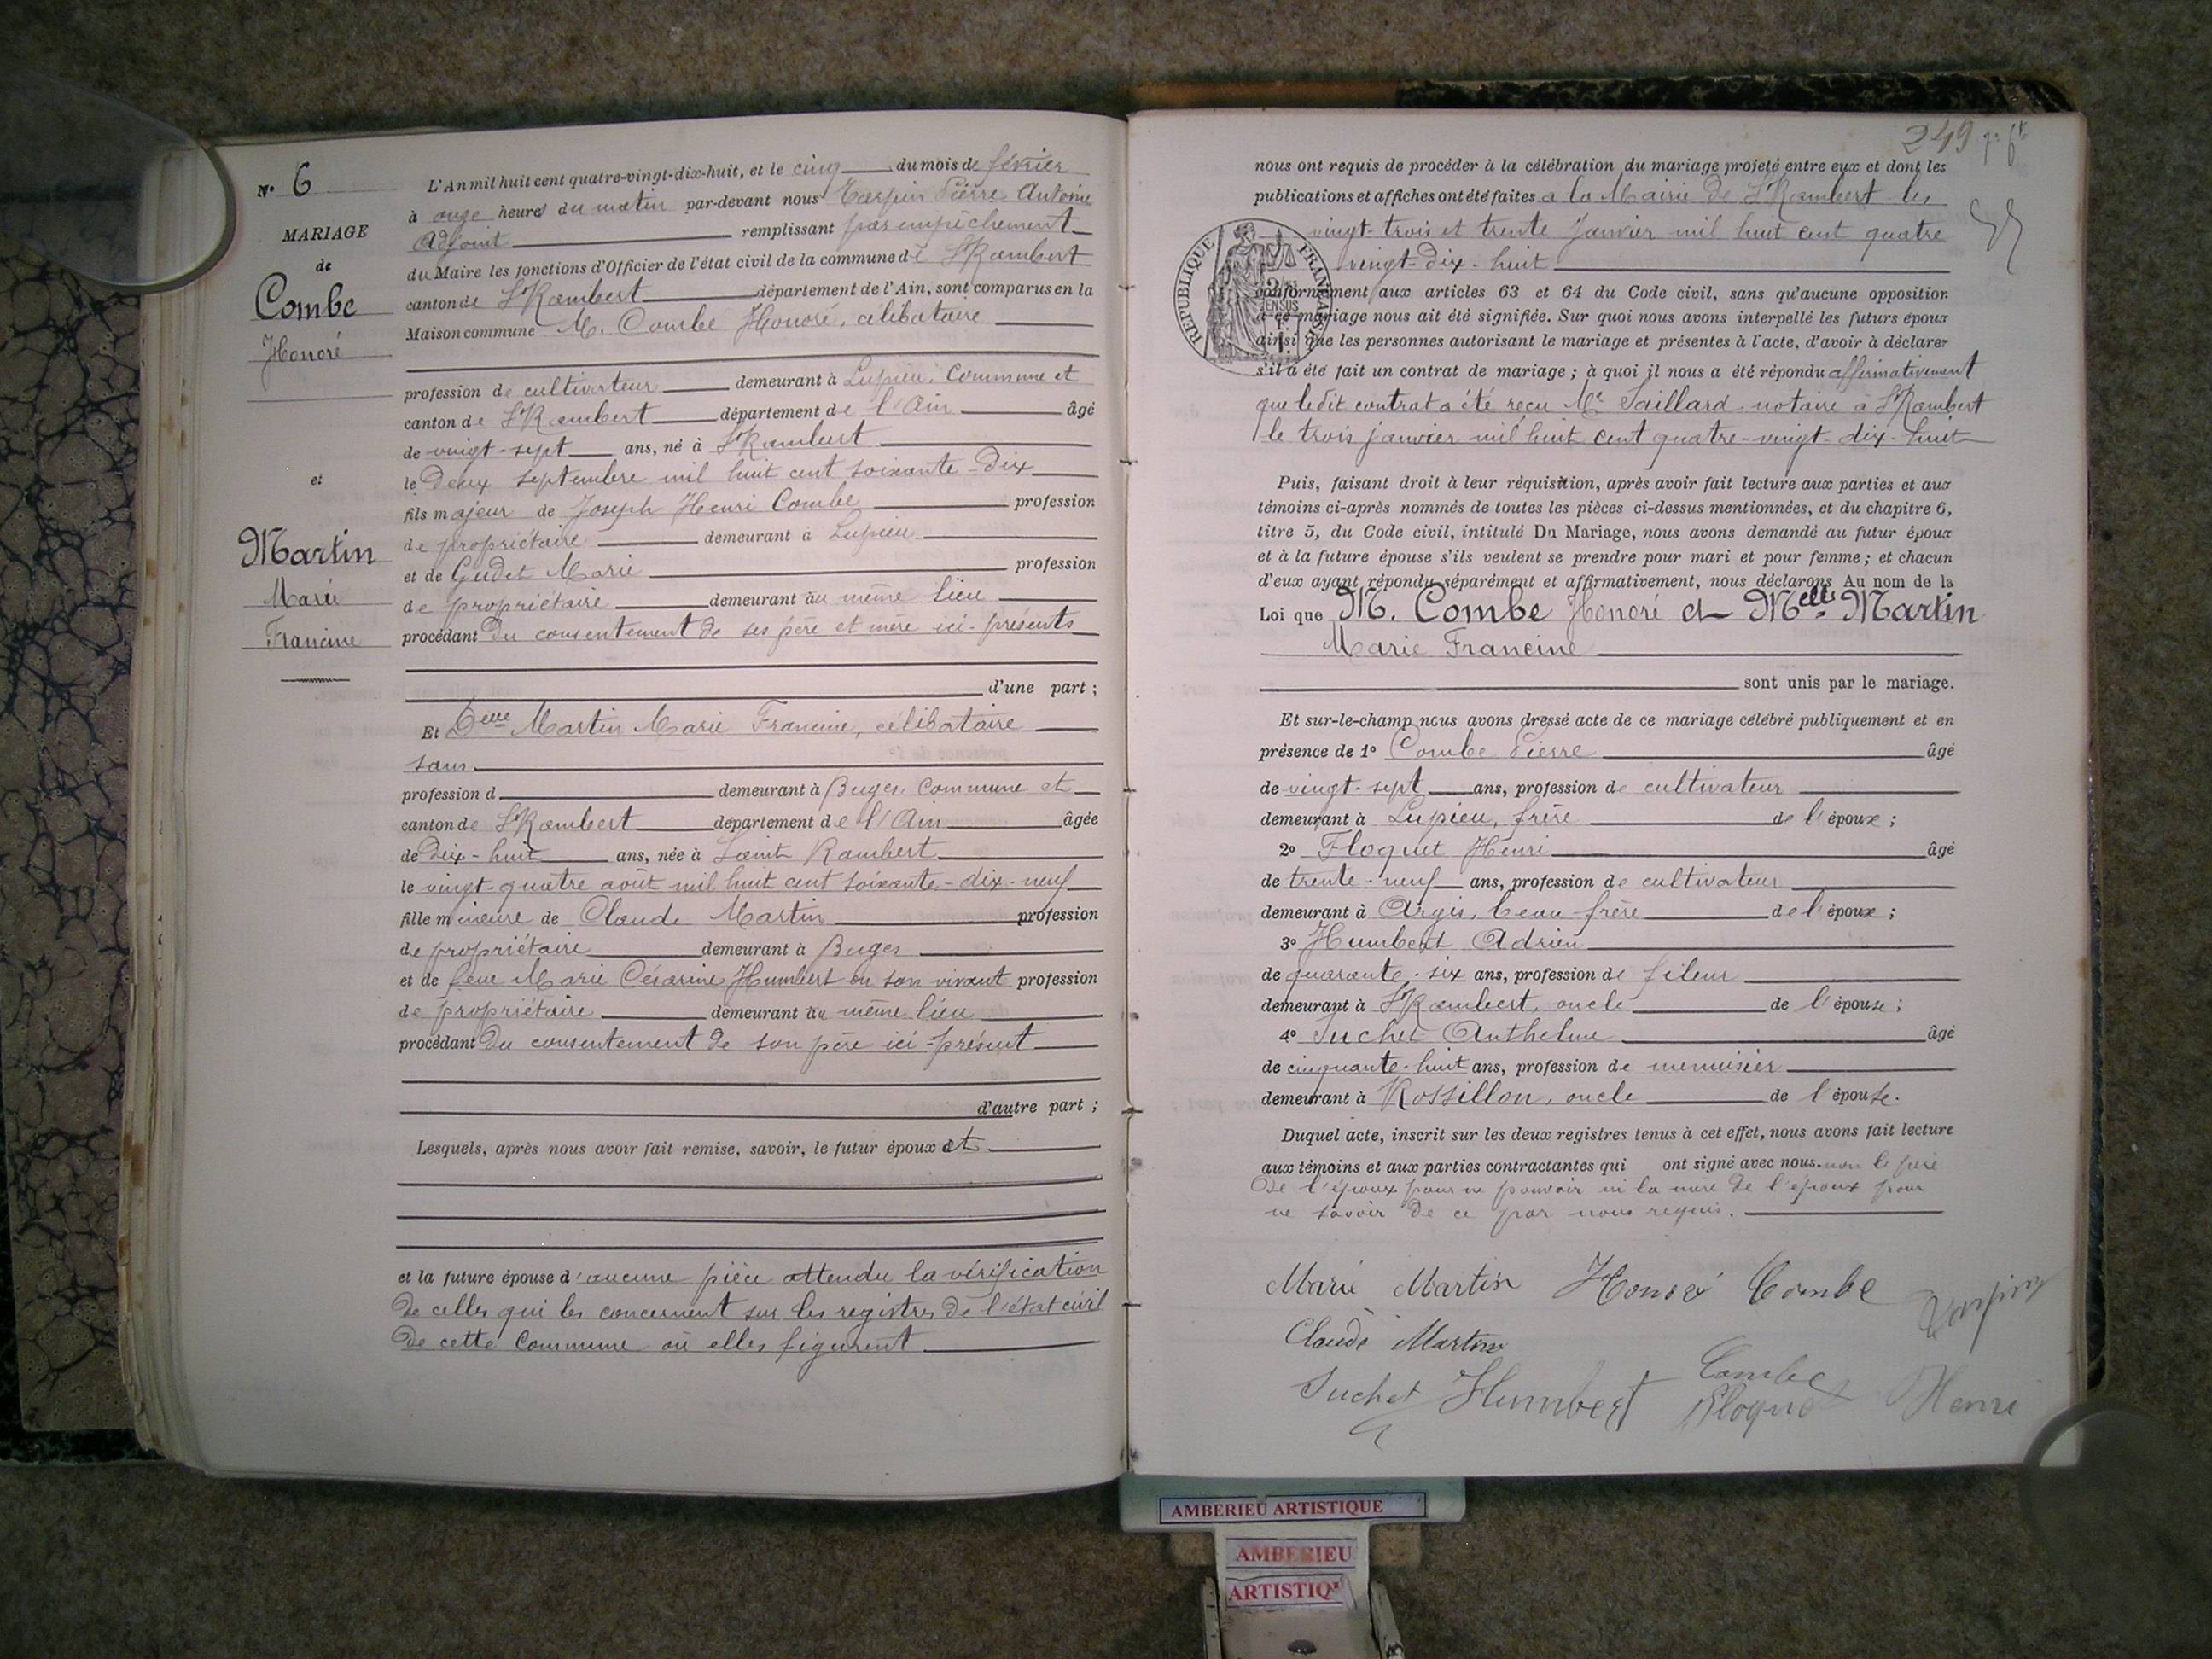 N° 6
MARIAGE
de
Combe
Honoré
et
Martin
Marie
Francine
L'An mil huit cent quatre-vingt-dix-huit, et le cinq du mois de février
à onze heures du matin par-devant nous Carpin Pierre Antoine
Adjoint remplissant par empêchement
du Maire les fonctions d'Officier de l'état civil de la commune de St Rambert
canton de St Rambert département de l'Ain, sont comparus en la
Maison commune M. Combe Honoré, célibataire
profession de cultivateur demeurant à Lupieu, Commune et
canton de St Rambert département de l'Ain âgé
de vingt-sept ans, né à St Rambert
le Deux septembre mil huit cent soixante-dix
fils majeur de Joseph Henri Combe profession
de propriétaire demeurant à Lupieu
et de Gudet Marie profession
de propriétaire demeurant au même lieu
procédant du consentement de ses père et mère ici-présents
d'une part ;
Et Delle Martin Marie Francine, célibataire
sans
profession d demeurant à Buges Commune et
canton de St Rambert département de l'Ain âgée
de Dix-huit ans, née à Saint Rambert
le vingt-quatre août mil huit cent soixante-dix-neuf
fille mineure de Claude Martin profession
de propriétaire demeurant à Buges
et de feue Marie Césarine Humbert en son vivant profession
de propriétaire demeurant au même lieu
procédant du consentement de son père ici-présent
d'autre part ;
Lesquels, après nous avoir fait remise, savoir, le futur époux et
et la future épouse d'aucune pièce attendu la vérification
de celles qui les concernent sur les registres de l'état civil
de cette Commune où elles figurent
249
nous ont requis de procéder à la célébration du mariage projeté entre eux et dont les
publications et affiches ont été faites à la Mairie de St Rambert les
vingt-trois et trente Janvier mil huit cent quatre
vingt-dix-huit
REPUBLIQUE FRANÇAISE
conformément aux articles 63 et 64 du Code civil, sans qu'aucune opposition
à ce mariage nous ait été signifiée. Sur quoi nous avons interpellé les futurs époux
ainsi que les personnes autorisant le mariage et présentes à l'acte, d'avoir à déclarer
s'il a été fait un contrat de mariage ; à quoi il nous a été répondu affirmativement
que ledit contrat a été reçu Me Saillard notaire à St Rambert
le trois janvier mil huit cent quatre-vingt-dix-huit
Puis, faisant droit à leur réquisition, après avoir fait lecture aux parties et aux
témoins ci-après nommés de toutes les pièces ci-dessus mentionnées, et du chapitre 6,
titre 5, du Code civil, intitulé Du Mariage, nous avons demandé au futur époux
et à la future épouse s'ils veulent se prendre pour mari et pour femme ; et chacun
d'eux ayant répondu séparément et affirmativement, nous déclarons Au nom de la
Loi que M. Combe Honoré et Melle Martin
Marie Francine
sont unis par le mariage.
Et sur-le-champ nous avons dressé acte de ce mariage célébré publiquement et en
présence de 1° Combe Pierre âgé
de vingt-sept ans, profession de cultivateur
demeurant à Lupieu, frère de l'époux ;
2° Floquet Henri âgé
de trente-neuf ans, profession de cultivateur
demeurant à Argis, beau frère de l'époux ;
3° Humbert Adrien
de quarante-six ans, profession de fileur
demeurant à St Rambert, oncle de l'épouse ;
4° Suchet Anthelme âgé
de cinquante-huit ans, profession de menuisier
demeurant à Rossillon, oncle de l'épouse.
Duquel acte, inscrit sur les deux registres tenus à cet effet, nous avons fait lecture
aux témoins et aux parties contractantes qui ont signé avec nous. non le père
de l'époux pour ne pouvoir ni la mère de l'époux pour
ne savoir de ce par nous requis.
Marie Martin Honoré Combe
Carpin
Claude Martin
Combe
Suchet Humbert Floquet Henri
AMBERIEU ARTISTIQUE
AMBERIEU
ARTISTIQ